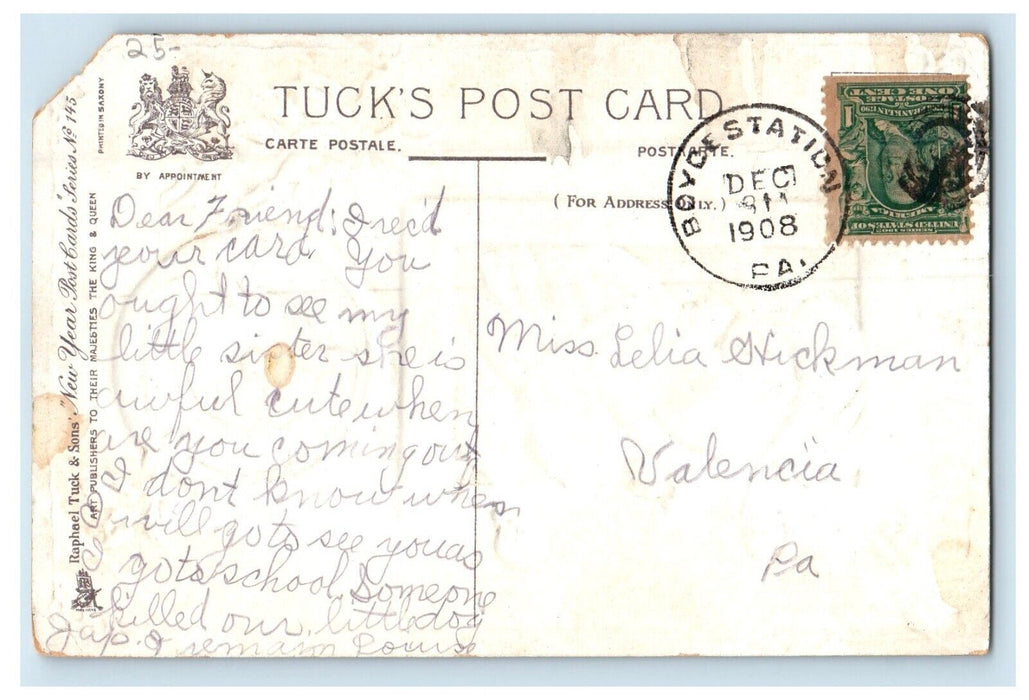 25-
TUCK'S POST CARD
CARTE POSTALE.
POSTKARTE.
BY APPOINTMENT
(FOR ADDRESS ONLY.)
PRINTED IN SAXONY
Raphael Tuck & Sons' "New Year Post Cards" Series No 145
ART PUBLISHERS TO THEIR MAJESTIES THE KING & QUEEN
BOYCE STATION
DEC
1908
PA.
ONE CENT
1
UNITED STATES OF
AMERICA
SERIES 1902
Dear Friend: I rec'd
your card You
ought to see my
little sister she is
awful cute when
are you coming out
I dont know when
will go to see you as
go to school Someone
killed our little dog
Jap. I remain Louise
Miss Lelia Hickman
Valencia
Pa